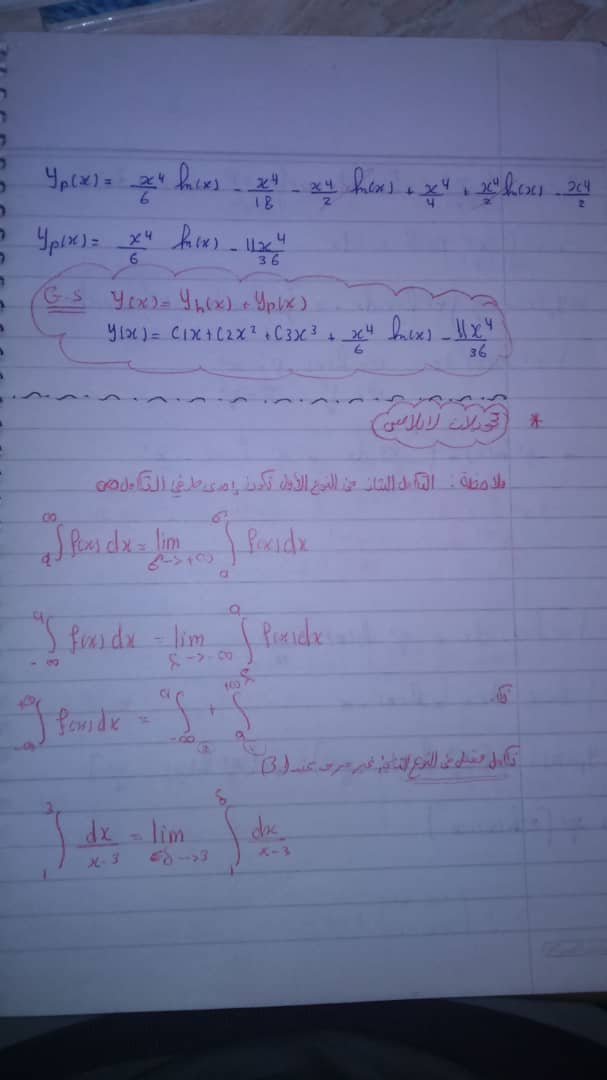 yp(x) = x⁴/6 ln(x) - x⁴/18 - x⁴/2 ln(x) + x⁴/4 + x⁴/2 ln(x) - x⁴/2
yp(x) = x⁴/6 ln(x) - 11x⁴/36
G-S y(x) = yh(x) + yp(x)
y(x) = C1x + C2x² + C3x³ + x⁴/6 ln(x) - 11x⁴/36
* تحويلات لابلاس
ملاحظة: التكامل من النوع الأول تكون إحدى طرفي التكامل ∞
∫ₐ^∞ f(x) dx = lim ∫ₐ f(x) dx
∫₋∞^a f(x) dx = lim ∫^a f(x) dx
∫ f(x) dx = ∫₋∞^a + ∫ₐ^+∞
تكامل من النوع الثاني غير معرف عند
∫₁ dx/x-3 = lim ∫₁ dx/x-3